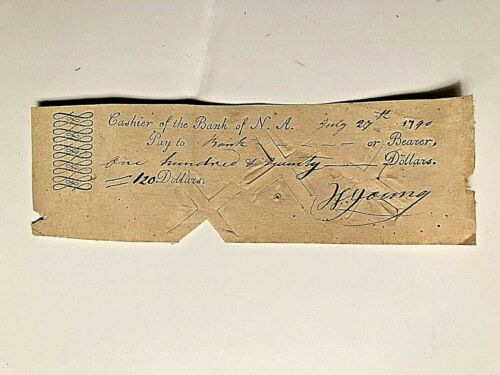 Cashier of the Bank of N. A. July 27th 1790
Pay to Bank or Bearer,
one hundred & twenty Dollars.
120 Dollars.
W. Young